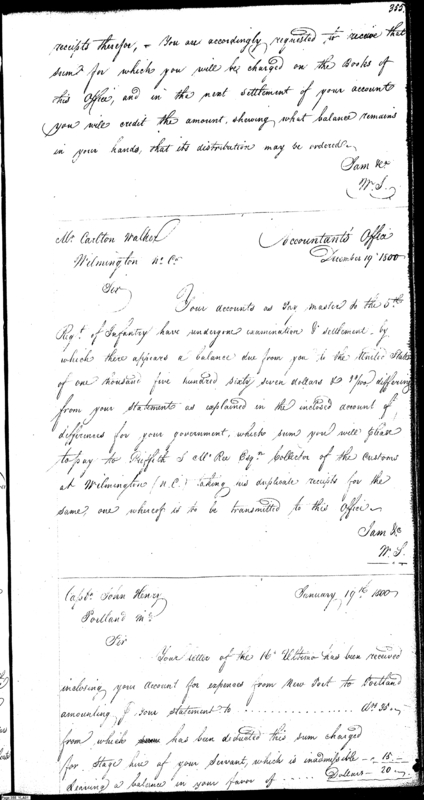 355
receipts therefor, - You are accordingly requested to receive that
sum for which you will be charged on the Books of
this Office, and in the next settlement of your account
you will credit the amount, shewing what balance remains
in your hands, that its distribution may be ordered
I am &c
W. S.
Mr Carlton Walker
Accountant's Office
Wilmington N. C.
December 19th 1800
Sir
Your accounts as Pay master to the 5th
Regt. of Infantry have undergone examination & settlement - by
which there appears a balance due from you to the United States
of one thousand five hundred sixty seven dollars & /100 differing
from your statement as explained in the inclosed account of
differences for your government, which sum you will please
to pay to Griffith J McRee Esqr Collector of the Customs
at Wilmington (N.C.) taking his duplicate receipts for the
same, one whereof is to be transmitted to this Office
I am &c
W. S.
Captn. John Henry
January 19th 1800
Portland Me
Sir
Your letter of the 16th Ultimo has been received
inclosing your account for expenses from New Port to Portland
amounting Your statement to 35
from which has been deducted this sum charged
for Stage hire of your Servant, which is inadmissible - 15
Leaving a balance in your favor of Dollars 20